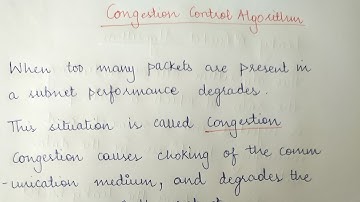 Congestion Control Algorithm
When too many packets are present in
a subnet performance degrades.
This situation is called Congestion
Congestion causes choking of the comm
-unication medium, and degrades the